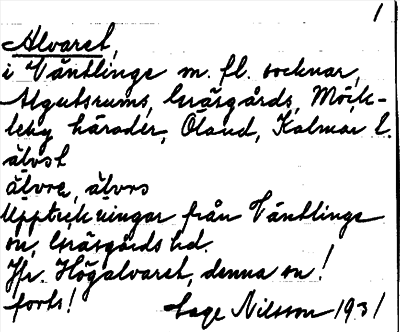 1
Alvaret,
i Ventlinge m. fl. socknar,
Algutsrums, Gräsgårds, Möck-
leby härader, Öland, Kalmar l.
älvst
älvre, älvrs
Uppteckningar från Ventlinge
sn, Gräsgårds hd.
Jfr. Högalvaret, denna sn!
forts!
Sage Nilsson 1931